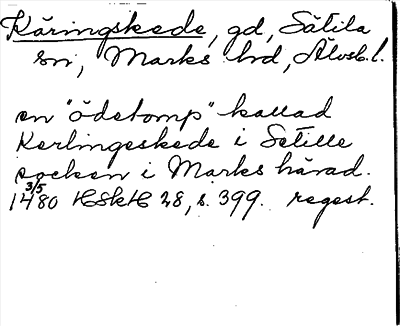 Käringskede, gd, Sätila
sn, Marks hd, Älvsb. l.
en "ödetomp" kallad
Kerlingeskede i Setille
socken i Marks härad.
3/5
1480 HSkH 28, s. 399. regest.